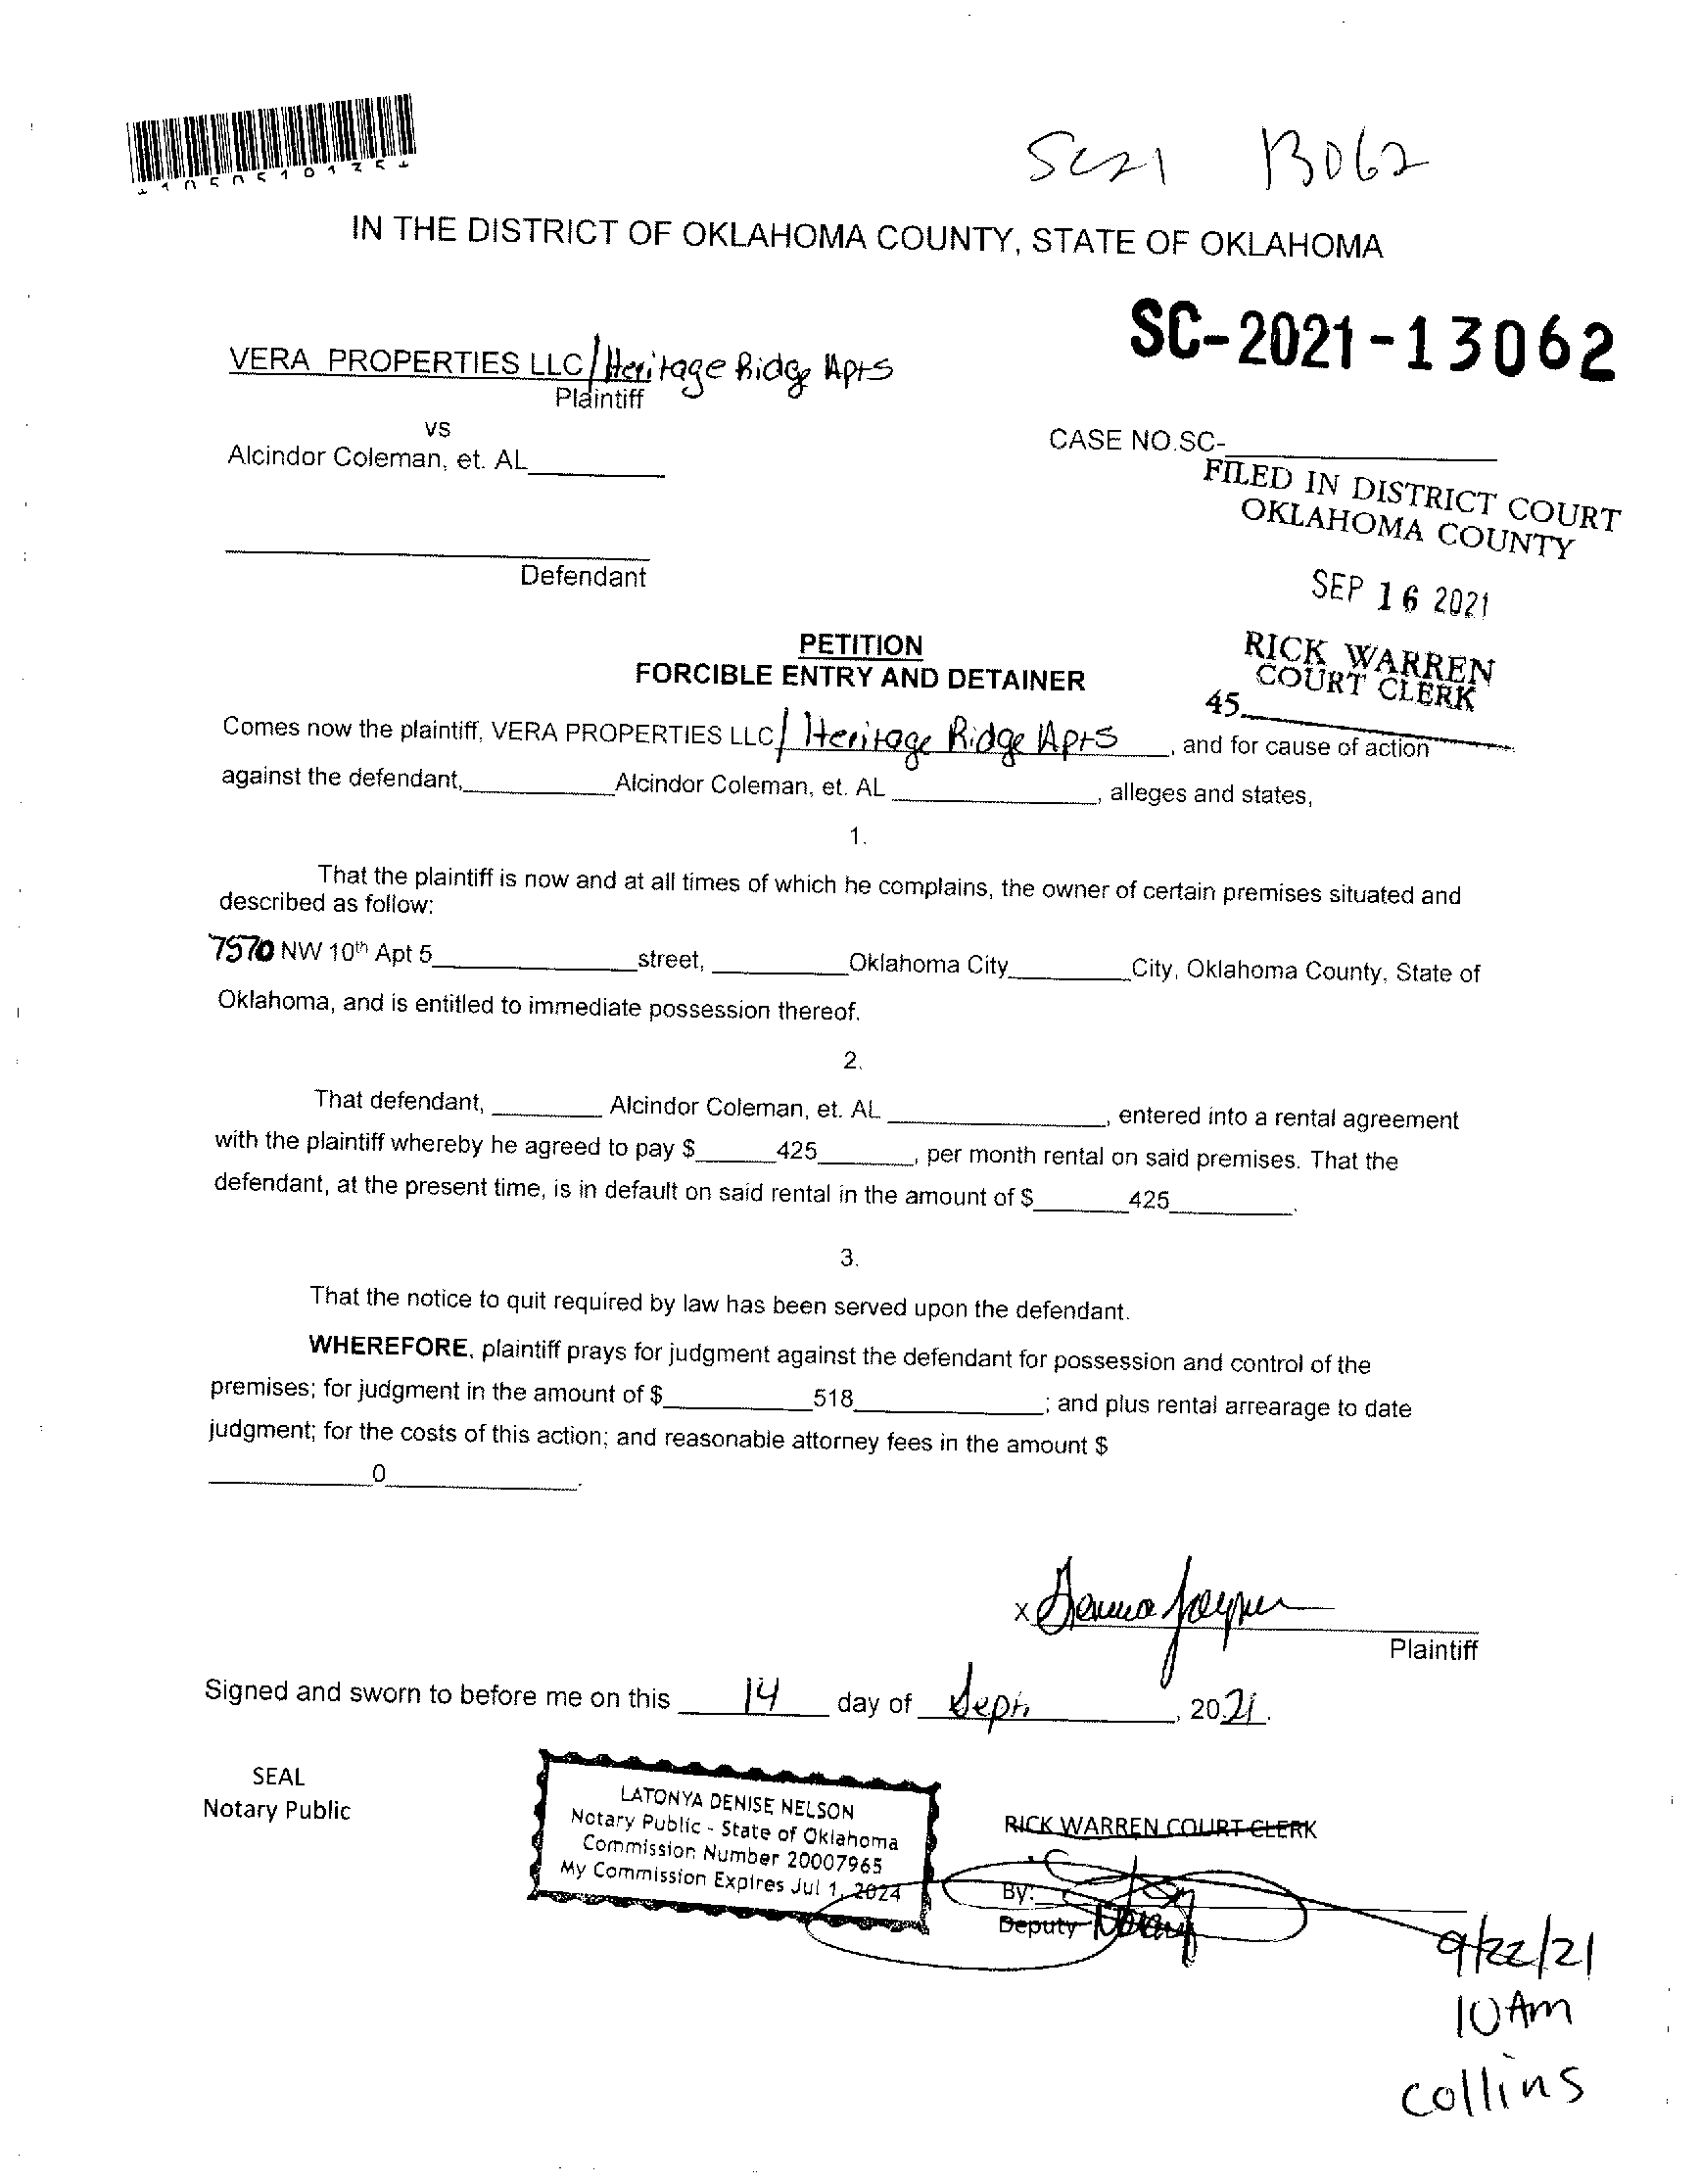 SC21 13062
IN THE DISTRICT OF OKLAHOMA COUNTY, STATE OF OKLAHOMA
SC-2021-13062
VERA PROPERTIES LLC/Heritage Ridge Apts
Plaintiff
vs
CASE NO.SC-
Alcindor Coleman, et. AL
FILED IN DISTRICT COURT
OKLAHOMA COUNTY
Defendant
SEP 16 2021
PETITION
FORCIBLE ENTRY AND DETAINER
RICK WARREN
COURT CLERK
45
Comes now the plaintiff, VERA PROPERTIES LLC/Heritage Ridge Apts, and for cause of action
against the defendant, Alcindor Coleman, et. AL, alleges and states,
1.
That the plaintiff is now and at all times of which he complains, the owner of certain premises situated and
described as follow:
7570 NW 10th Apt 5 street, Oklahoma City City, Oklahoma County, State of
Oklahoma, and is entitled to immediate possession thereof.
2.
That defendant, Alcindor Coleman, et. AL, entered into a rental agreement
with the plaintiff whereby he agreed to pay $ 425, per month rental on said premises. That the
defendant, at the present time, is in default on said rental in the amount of $ 425.
3.
That the notice to quit required by law has been served upon the defendant.
WHEREFORE, plaintiff prays for judgment against the defendant for possession and control of the
premises; for judgment in the amount of $ 518; and plus rental arrearage to date
judgment; for the costs of this action; and reasonable attorney fees in the amount $
0.
x
Plaintiff
Signed and sworn to before me on this 14 day of Sept, 2021.
SEAL
Notary Public
LATONYA DENISE NELSON
Notary Public - State of Oklahoma
Commission Number 20007965
My Commission Expires Jul 1, 2024
RICK WARREN COURT CLERK
By:
Deputy Notary
9/22/21
10 Am
collins